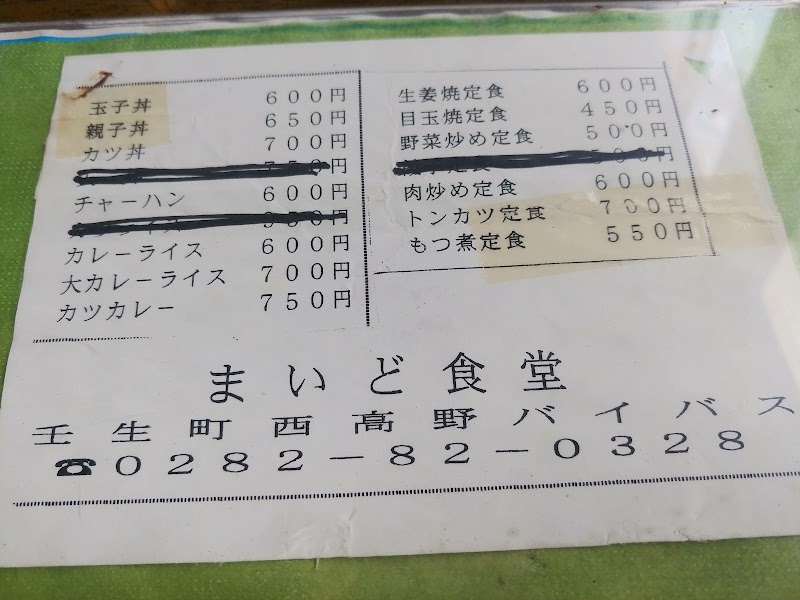 玉子丼 600円
親子丼 650円
カツ丼 700円
750円
チャーハン 600円
カレーライス 600円
大カレーライス 700円
カツカレー 750円
生姜焼定食 600円
目玉焼定食 450円
野菜炒め定食 500円
定食 500円
肉炒め定食 600円
トンカツ定食 700円
もつ煮定食 550円
まいど食堂
壬生町西高野バイパス
☎0282-82-0328